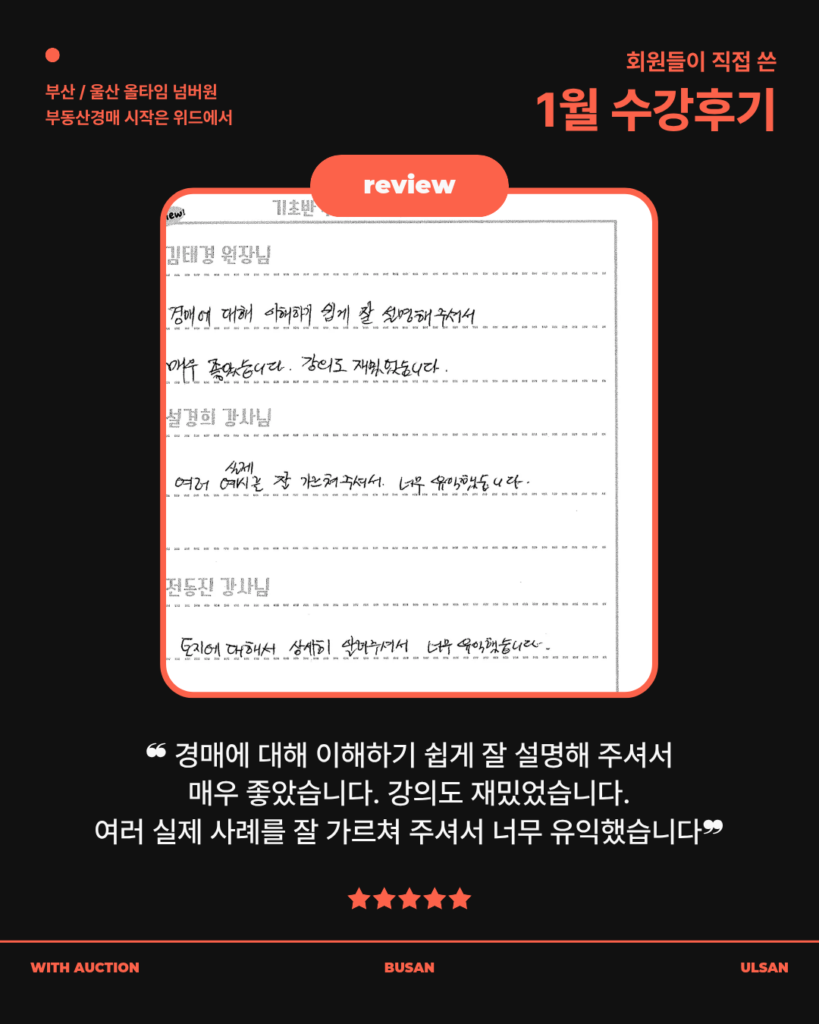 부산 / 울산 올타임 넘버원
부동산경매 시작은 위드에서
회원들이 직접 쓴
1월 수강후기
review
new!
기초반
김태경 원장님
경매에 대해 이해하기 쉽게 잘 설명해주셔서
매우 좋았습니다. 강의도 재밌었습니다.
설경희 강사님
실제
여러 예시를 잘 가르쳐주셔서. 너무 유익했습니다.
전동진 강사님
토지에 대해서 상세히 알려주셔서 너무 유익했습니다.
❝ 경매에 대해 이해하기 쉽게 잘 설명해 주셔서
매우 좋았습니다. 강의도 재밌었습니다.
여러 실제 사례를 잘 가르쳐 주셔서 너무 유익했습니다❞
WITH AUCTION
BUSAN
ULSAN